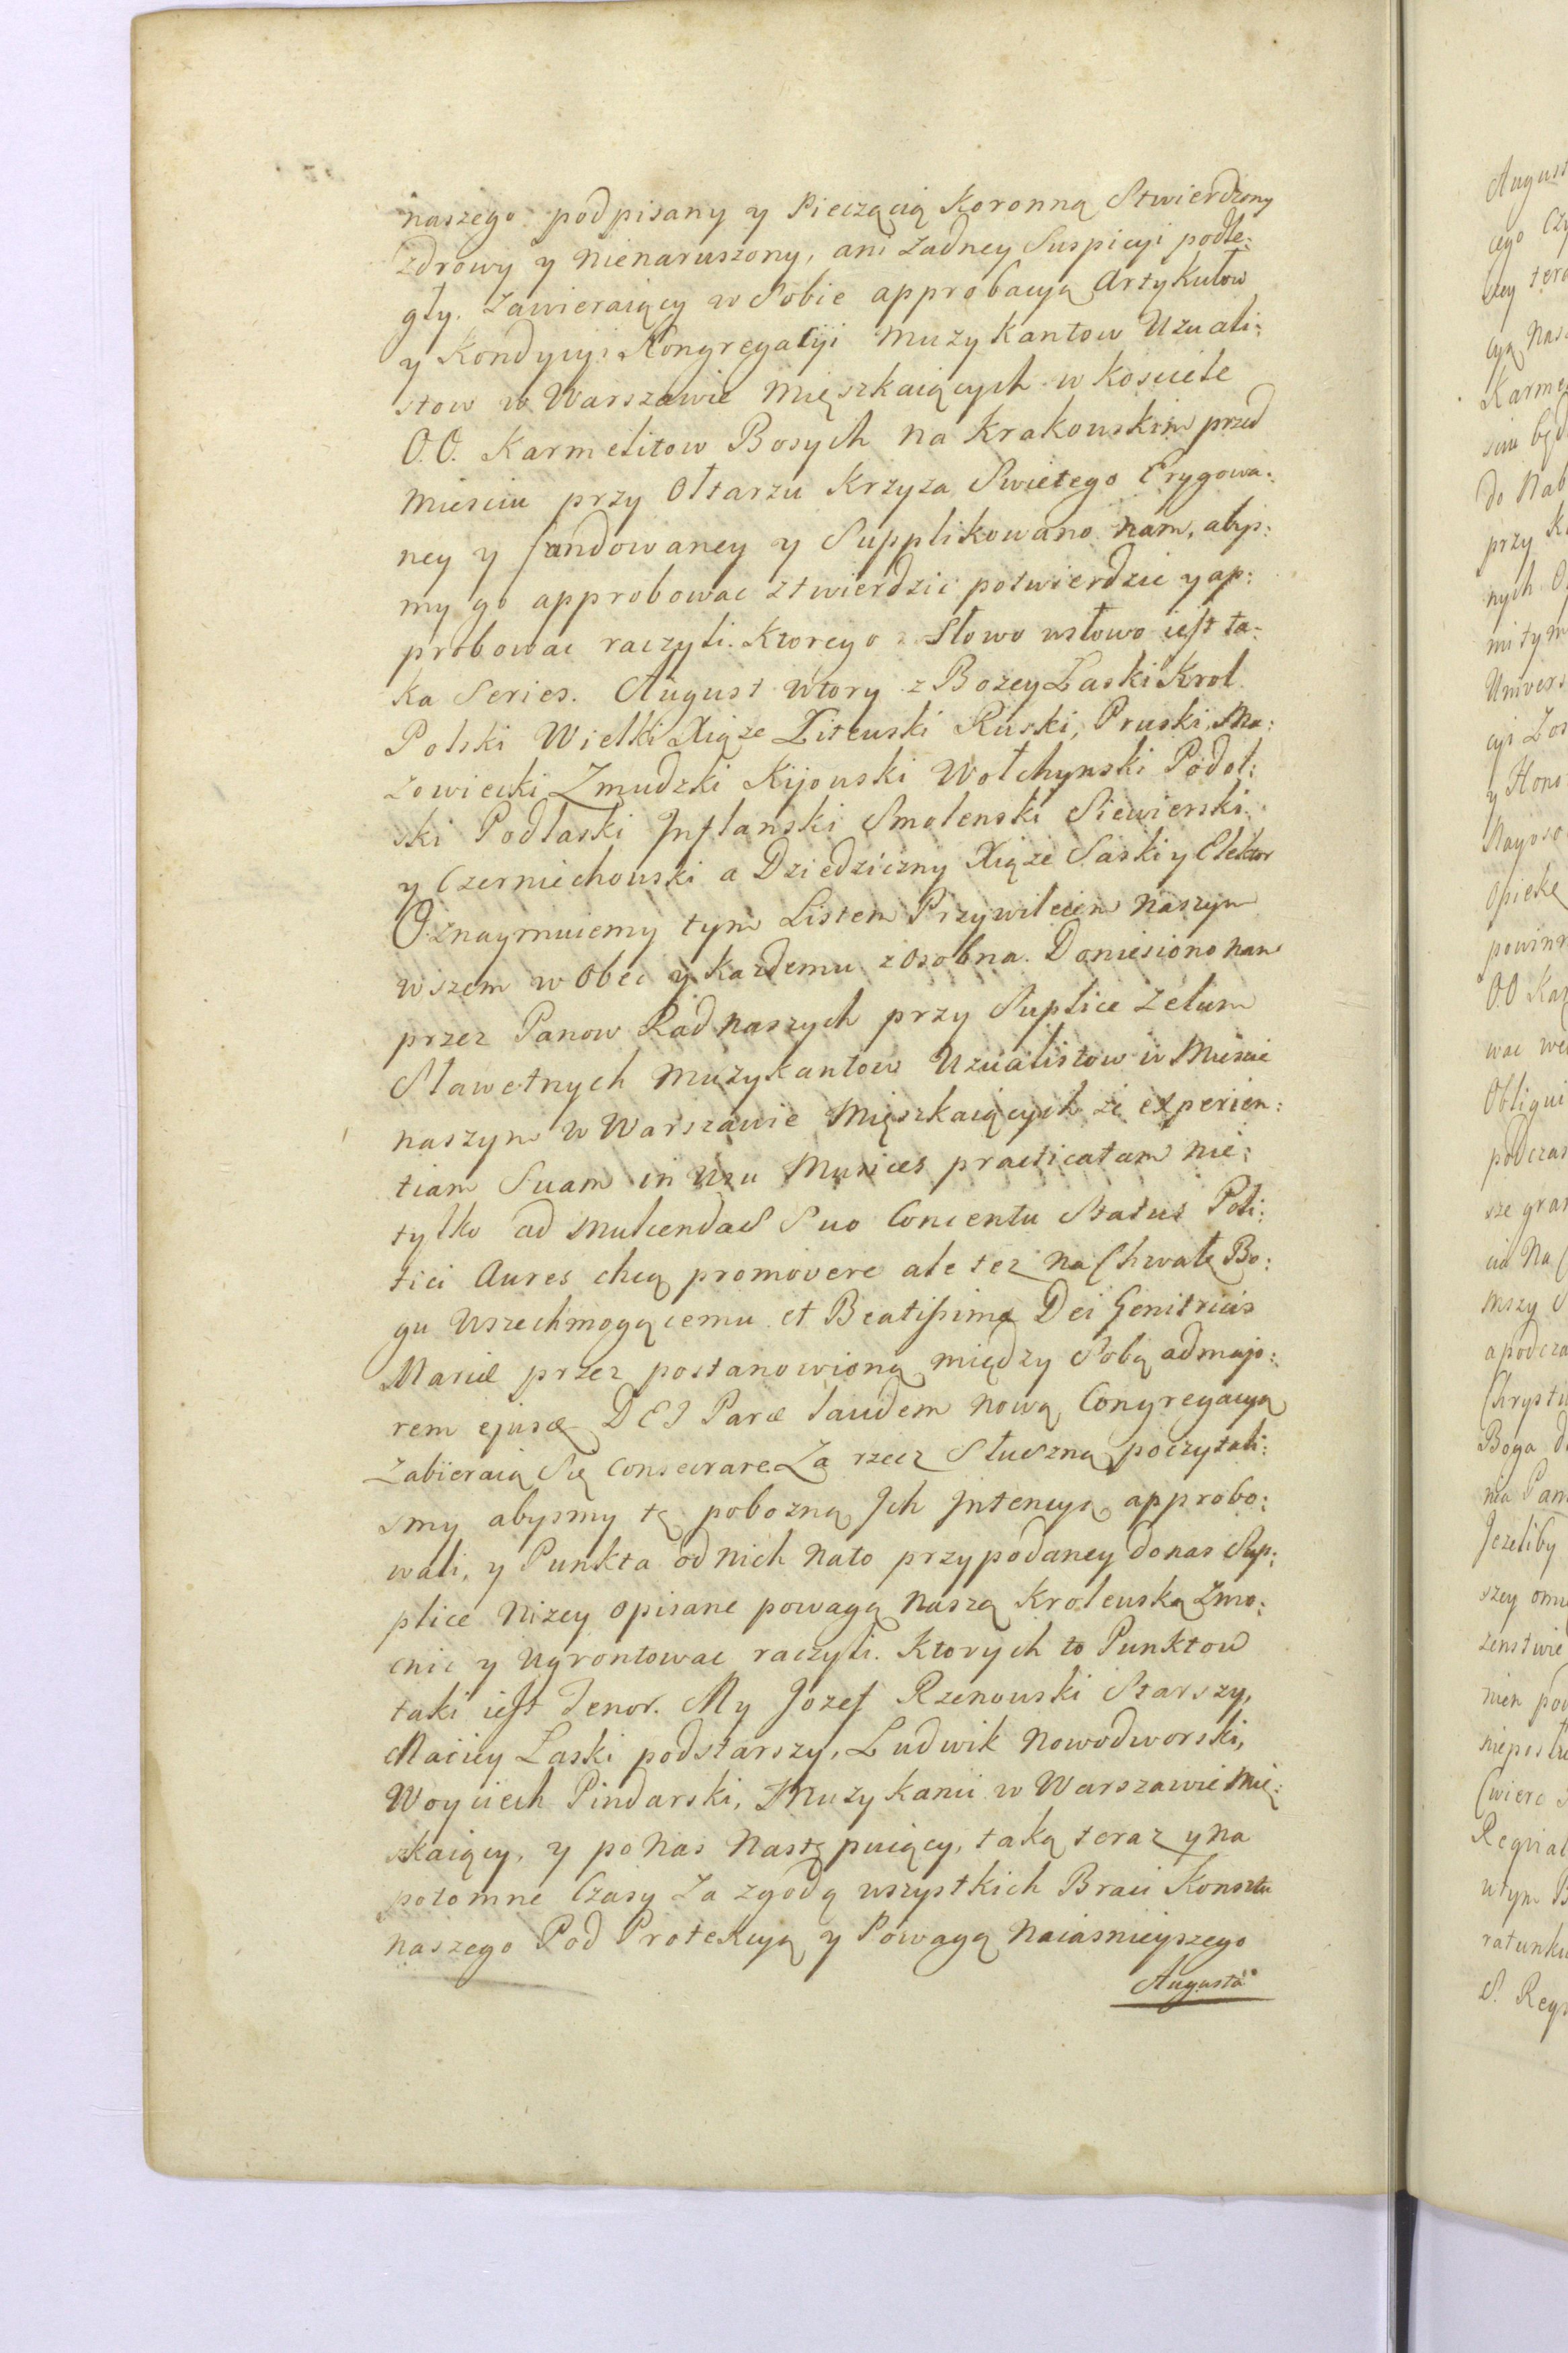 naszego podpisany y Pieczęcią Koronną Stwierdzony
zdrowy y nienaruszony, ani żadney Suspicyi podle:
gły. Zawieraiący w Sobie approbacyą Artykułow
y Kondycyi Kongregacyi Muzykantow Uzuali:
stow w Warszawie Mięszkaiących w Kosciele
O.O. Karmelitow Bosych na Krakowskim przed
Miesciu przy Ołtarzu Krzyza Swietego Erygowa:
ney y fundowaney y Supplikowano nam, abys:
my go approbowac ztwierdzic potwierdzic y ap:
probowac raczyli. Ktorego z Słowo wsłowo iest ta:
ka Series. August wtory z Bozey Łaski Krol
Polski Wielki Xiąze Litewski Ruski, Pruski, Ma:
zowiecki Zmudzki Kijowski Wołchynski Podol:
ski Podlaski Inflanski Smolenski Siewierski
y Czerniechowski a Dziedziczny Xiąze Saski y Elektor
Oznaymuiemy tym Listem Przywileiem Naszym
wszem w Obec y Kazdemu z Osobna. Doniesiono nam
przez Panow Rad naszych przy Suplice Zelum
Sławetnych Muzykantow Uzualistow w Miescie
naszym w Warszawie Mięszkaiących ze experien:
tiam Suam in Usu Musices practicatam nie:
tylko ad mulcendas Suo Concentu Status Poli:
tici Aures chcą promovere ale tez na Chwałę Bo:
gu Wszechmogącemu et Beatissimæ Dei Genitricis
Mariæ przez postanowioną między Sobą ad majo:
rem ejusq DEI Paræ laudem nową Congregacyą
Zabieraią Się Consecrare Za rzecz Słuszną poczytali:
smy abysmy tę pobozną Ich Intencyą approbo:
wali, y Punkta od nich nato przy podaney do nas Sup:
plice nizey opisane powagą naszą Krolewską Zmo:
cnic y ugrontowac raczyli. Ktorych to Punktow
taki iest Tenor. My Jozef Rzenowski Starszy,
Maciey Laski podstarszy, Ludwik Nowodworski,
Woyciech Pindarski, Muzykanci w Warszawie Mię:
szkaiący, y po Nas Następuiący, taką teraz y na
potomne Czasy Za zgodą wszystkich Braci Konsztu
naszego Pod Protekcyą y Powagą Naiasnieyszego
Augusta